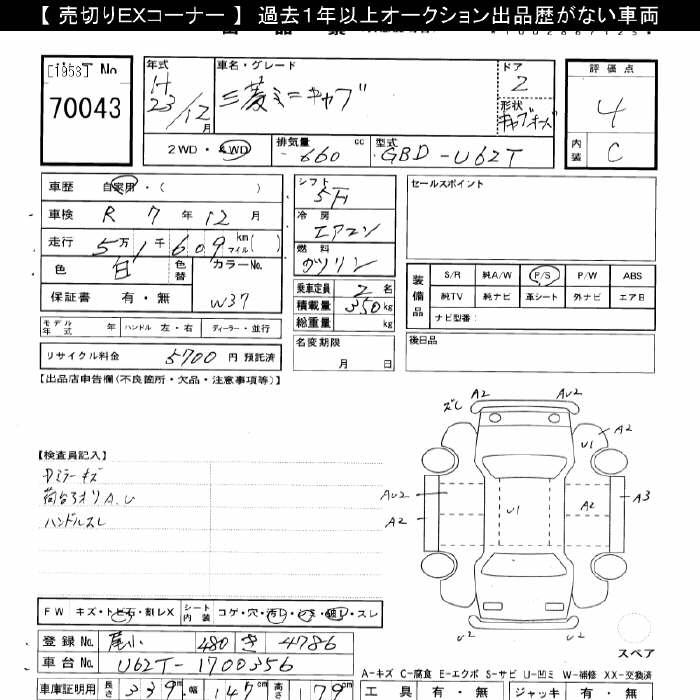 【 売切りEXコーナー 】 過去1年以上オークション出品歴がない車両
[1953] No
70043
年式
H
23/12
月
車名・グレード
三菱ミニキャブ
ドア
2
形状
キャブオーバ
評価点
4
内装
C
2WD・4WD
排気量
660
cc
型式
GBD-U62T
車歴 自家用・( )
車検 R 7 年 12 月
走行 5万 1千 609 km マイル( )
色 白 色替 カラーNo. W37
保証書 有・無
シフト
5F
冷房
エアコン
燃料
ガソリン
乗車定員 2 名
積載量 350 kg
総重量 kg
名変期限
月 日
セールスポイント
装備品
S/R 純A/W P/S P/W ABS
純TV 純ナビ 革シート 外ナビ エアB
ナビ型番:
後日品
モデル年式 年 ハンドル 左・右 ディーラー・並行
リサイクル料金 5700 円 預託済
【出品店申告欄(不良箇所・欠品・注意事項等)】
【検査員記入】
Dミラーキズ
荷台アオリA.U
ハンドルスレ
ズレ A2 AU2
A2
U1
AU2
A2
U1
A2
A3
U2
U2
スペア
FW キズ・トビ石・割レX シート内装 コゲ・穴・汚レ・シミ・破レ・スレ
登録 No. 尾小 480 き 4786
車台 No. U62T-1700356
車庫証明用 長さ 339 cm 幅 147 cm 高さ 179 cm
A-キズ C-腐食 E-エクボ S-サビ U-凹ミ W-補修 XX-交換済
工具 有・無 ジャッキ 有・無